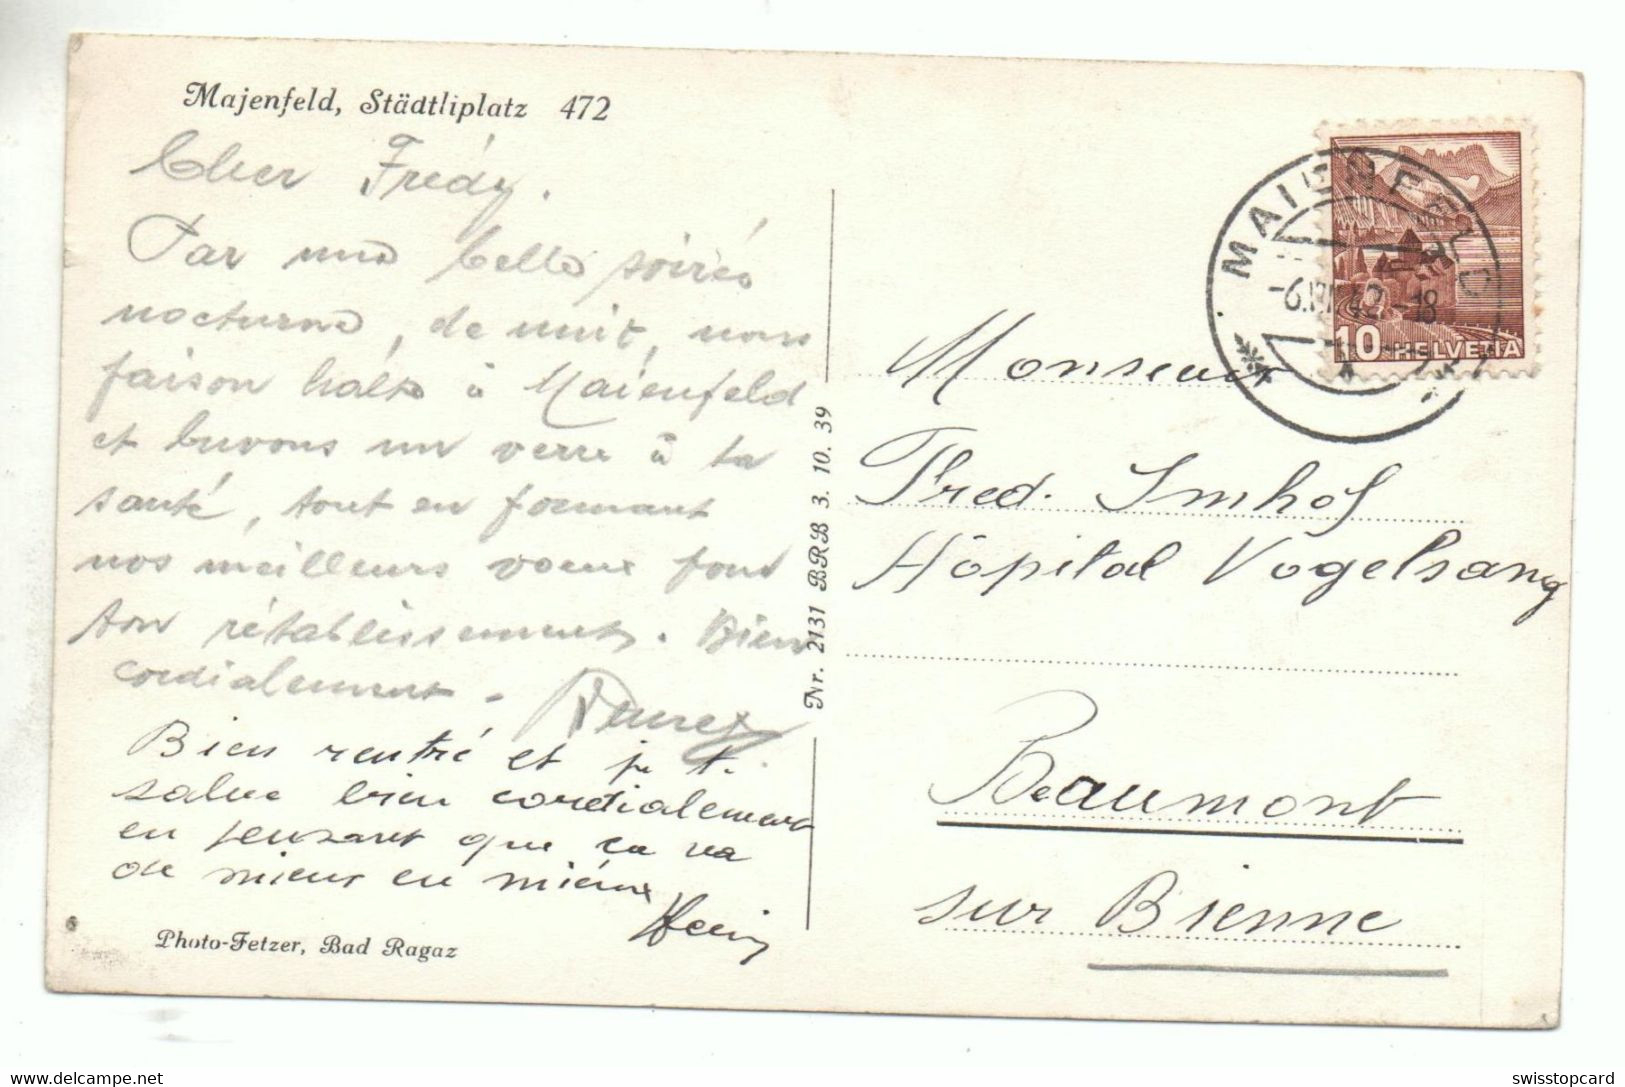 Majenfeld, Städtliplatz 472
Cher Frédy.
Par une belle soirée
nocturne, de nuit, nous
faison halte à Maienfeld
et buvons un verre à ta
santé, tout en formant
nos meilleurs voeux pour
ton rétablissement. Bien
cordialement -
Bien rentré et je te
salue bien cordialement
en pensant que ça va
de mieux en mieux
Photo-Fetzer, Bad Ragaz
Nr. 2131 BRB 3. 10. 39
MAIENFELD
-6. 42.-18
10 HELVETIA
Monsieur
Fred. Imhof
Hôpital Vogelsang
Beaumont
sur Bienne
swisstopcard